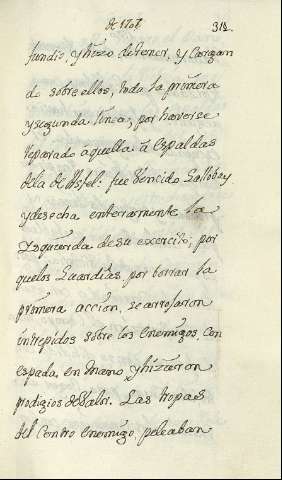 de 1707. 313.
fundio, y hizo detener, y cargan
do sobre ellos, toda la primera
y segunda linea, por haverse
reparado aquella à espaldas
dela de Asfel: fue vencido Gallobay
y desecha enteramente la
Izquierda de su exercito, por
que los Guardias por borrar la
primera accion, se arrojaron
intrepidos sobre los enemigos, con
espada en mano y hizieron
prodigios de valor. Las tropas
del Centro enemigo peleaban